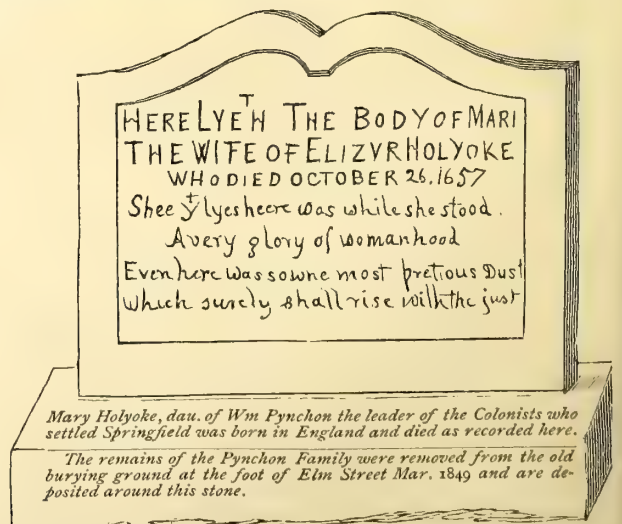 HERE LYETH THE BODY OF MARI
THE WIFE OF ELIZVR HOLYOKE
WHO DIED OCTOBER 26, 1657
Shee yt lyes heere was while she stood.
A very glory of womanhood
Even here was sowne most pretious Dust
Which surely shall rise with the just
Mary Holyoke, dau. of Wm Pynchon the leader of the Colonists who
settled Springfield was born in England and died as recorded here.
The remains of the Pynchon Family were removed from the old
burying ground at the foot of Elm Street Mar. 1849 and are de-
posited around this stone.